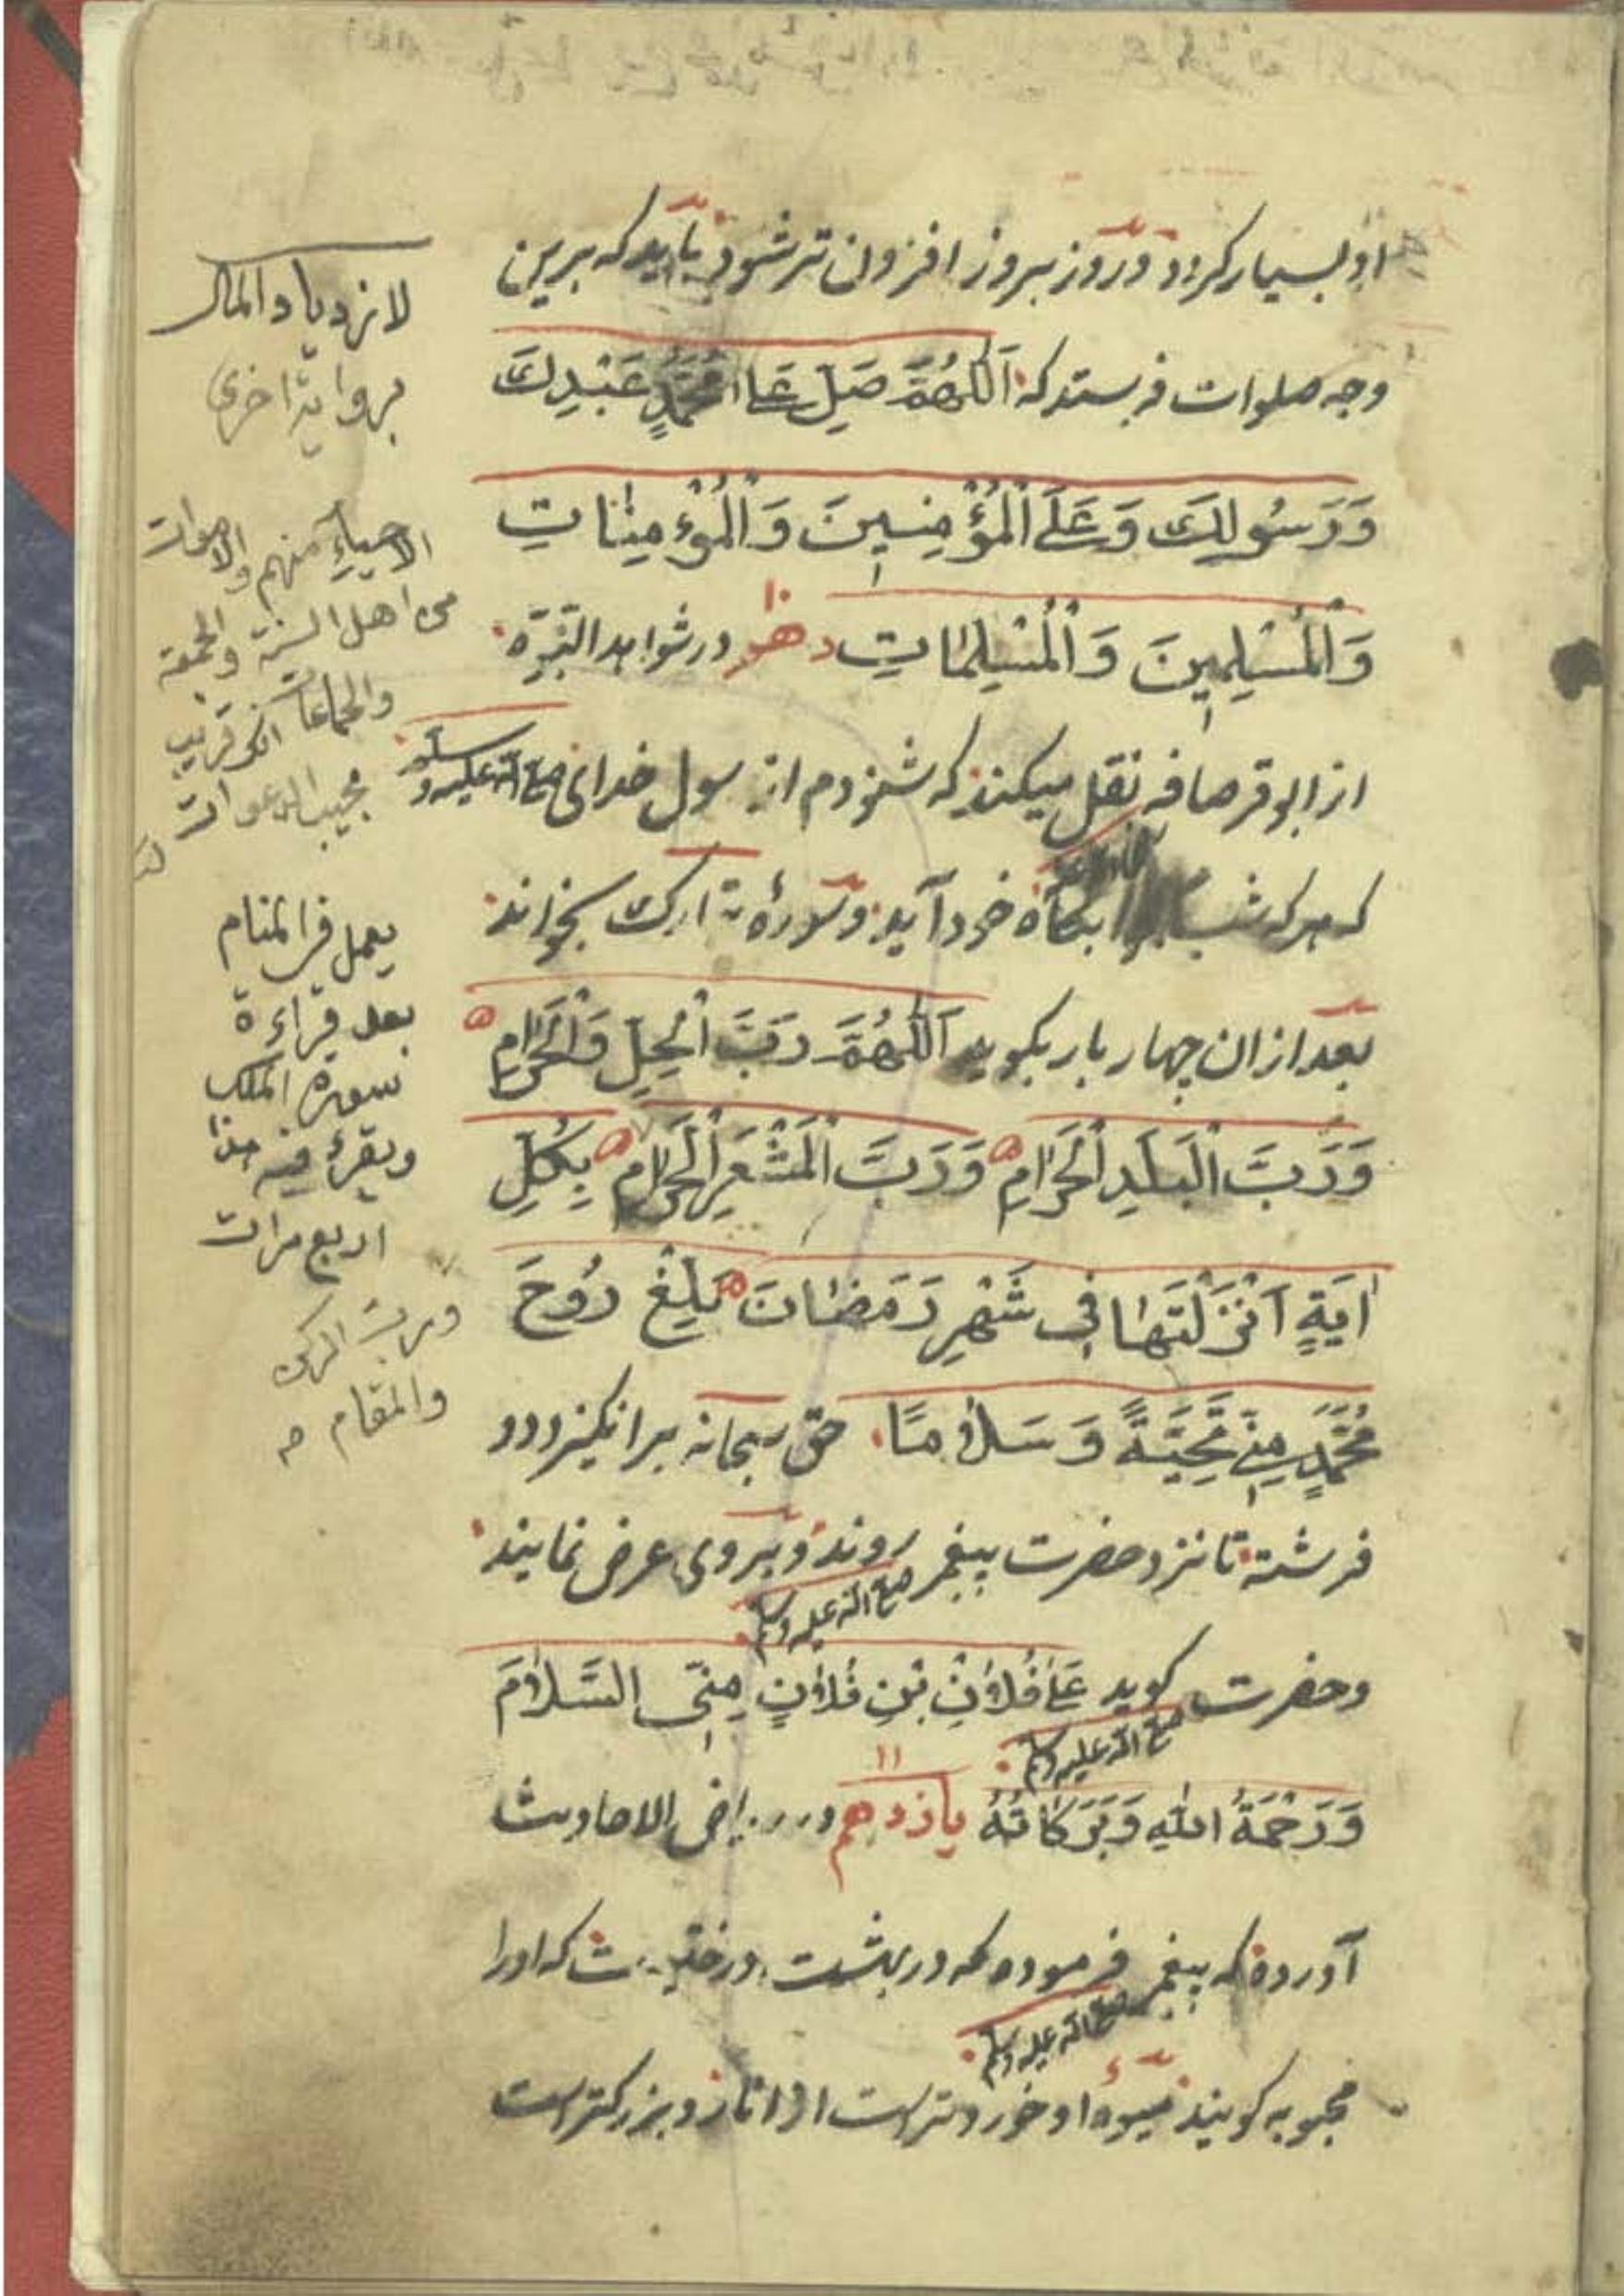 او بسیار کردد و روز بروز افزون تر شود باید که برین
وجه صلوات فرستد که اَللّٰهُمَّ صَلِّ عَلٰی مُحَمَّدٍ عَبْدِكَ
وَرَسُولِكَ وَعَلَی الْمُؤْمِنِینَ وَالْمُؤْمِنٰاتِ
وَالْمُسْلِمِینَ وَالْمُسْلِمٰاتِ دهم در شواهد النبوّه
از ابو قرصافه نقل میکنند که شنودم از رسول خدای صلی الله علیه وسلم
که هر که شب بجاه خود آید و سوره تبارك بخواند
بعد ازان چهار بار بکوید اَللّٰهُمَّ رَبَّ الْحِلِّ وَالْحَرٰامِ
وَرَبَّ الْبَلَدِ الْحَرٰامِ وَرَبَّ الْمَشْعَرِ الْحَرٰامِ بِكُلِّ
اٰیَةٍ اَنْزَلْتَهٰا فِی شَهْرِ رَمَضٰانَ بَلِّغْ رُوحَ
مُحَمَّدٍ مِنِّی تَحِیَّةً وَسَلٰامًا حق سبحانه برانکیزد دو
فرشته تا نزد حضرت پیغمبر صلی الله علیه وسلم روند و بروی عرض نمایند
وحضرت صلی الله علیه وسلم کوید عَلٰی فُلٰانِ بْنِ فُلٰانٍ مِنِّی السَّلٰامُ
وَرَحْمَةُ اللّٰهِ وَبَرَكٰاتُهُ یازدهم ۱۱ در ریاض الاحادیث
آورده که پیغمبر صلی الله علیه وسلم فرموده که در بهشت درختیست که اورا
محبوبه کویند میوهٔ او خوردتر است از انار و بزرکتر است
لازدیاد المال
بروایة اخری
الاحیاءِ منهم والاموات
من اهل السنة والجمعة
والجماعات انك قریب
مجیب الدعوات
یعمل فی المنام
بعد قراءة
سورة الملك
ویقرء فیه هذا
اربع مرات
ورب الرکن
والمقام